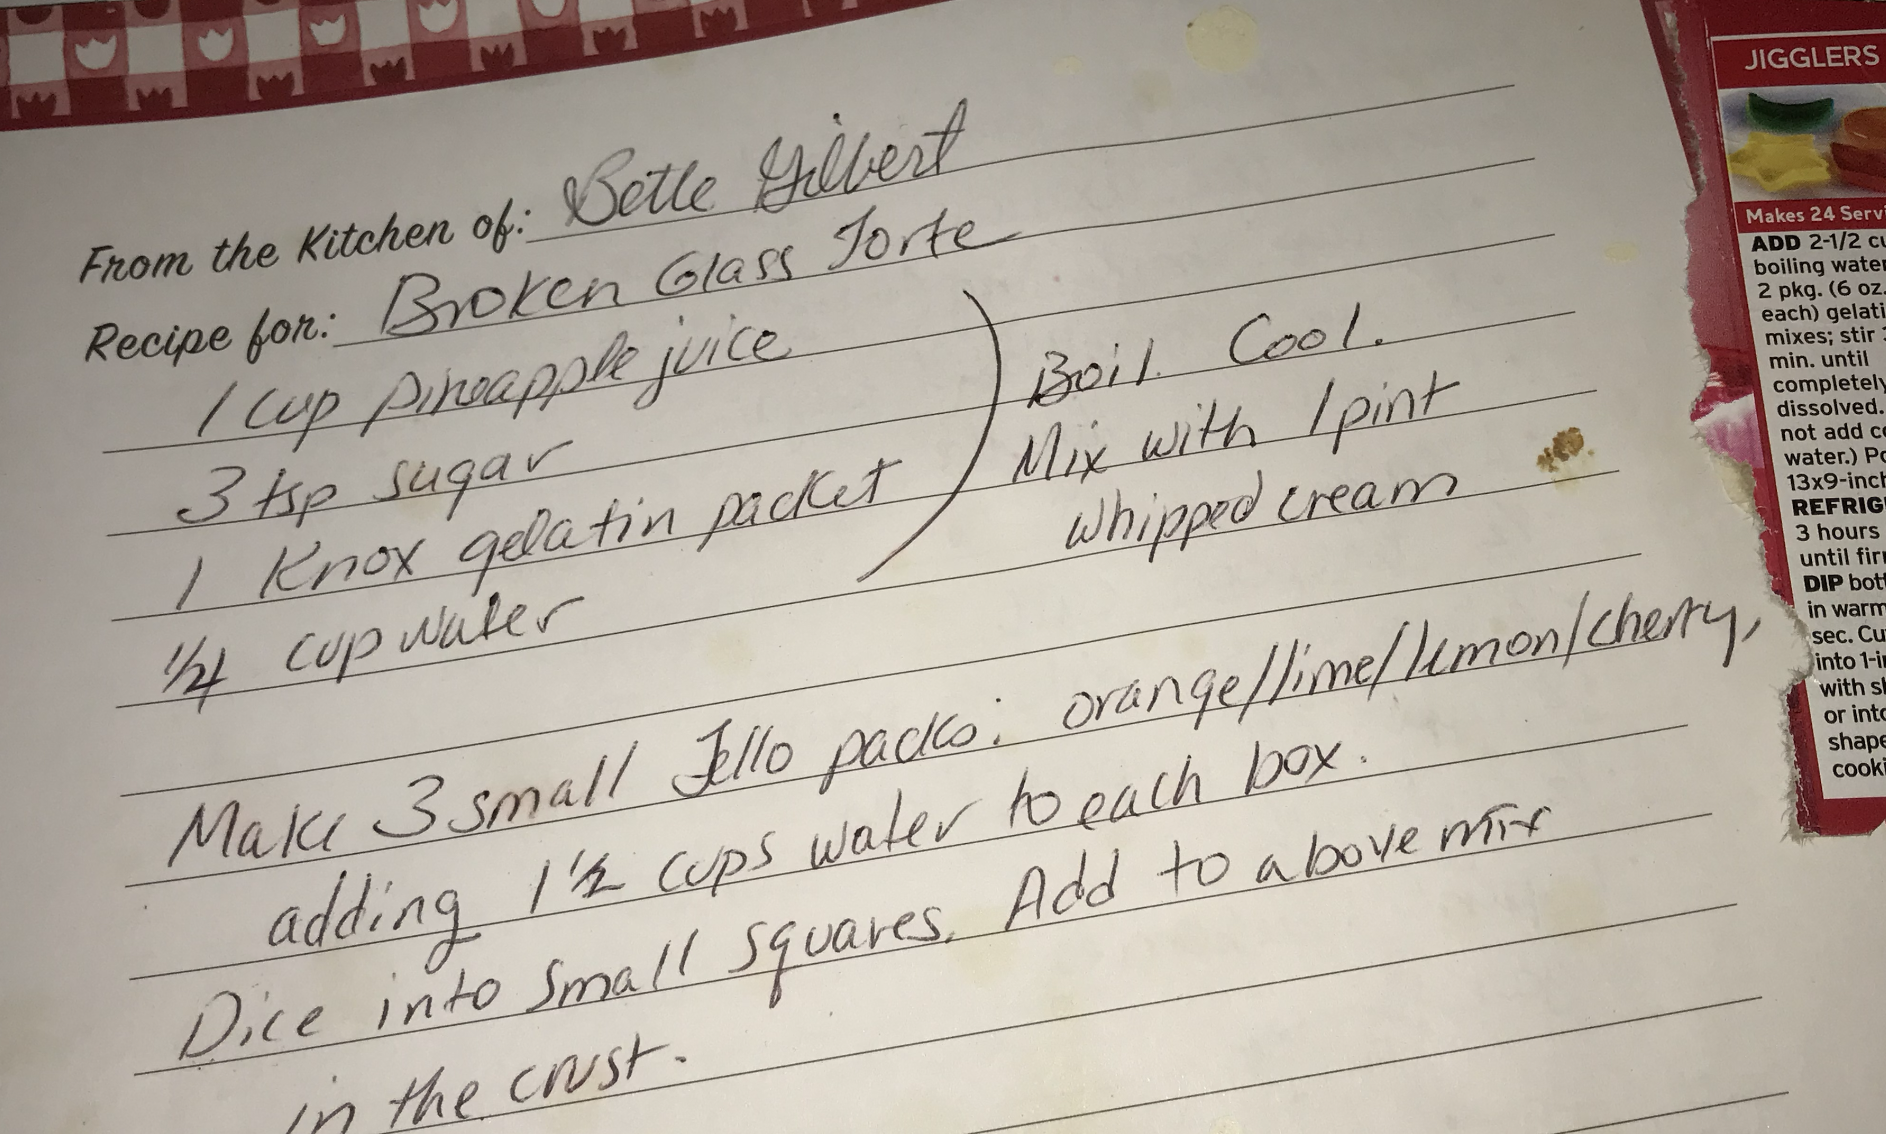 From the Kitchen of: Bette Gilbert
Recipe for: Broken Glass Torte
1 cup pineapple juice
3 tsp sugar
1 Knox gelatin packet
1/4 cup water
Boil. Cool.
Mix with 1 pint
whipped cream
Make 3 small Jello packs: orange/lime/lemon/cherry,
adding 1 1/2 cups water to each box.
Dice into small squares. Add to above mix
in the crust.
JIGGLERS
Makes 24 Servi
ADD 2-1/2 cu
boiling water
2 pkg. (6 oz.
each) gelati
mixes; stir 3
min. until
completely
dissolved.
not add co
water.) Po
13x9-inch
REFRIG
3 hours
until firm
DIP bott
in warm
sec. Cu
into 1-in
with sh
or into
shape
cooki